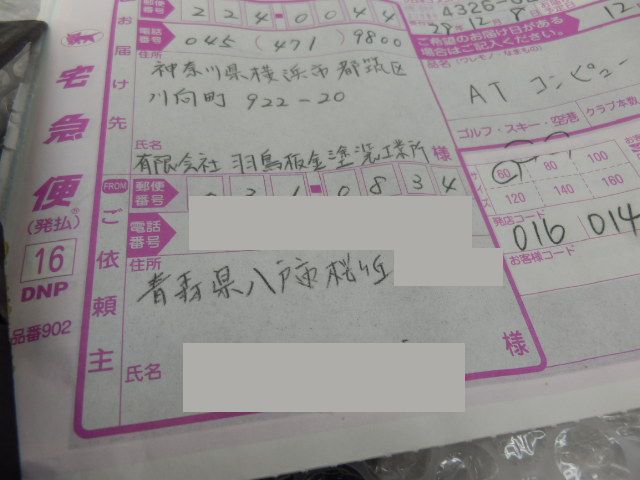 お届け先
郵便番号
224-0044
電話番号
045 (471) 9800
住所
神奈川県横浜市都筑区
川向町 922-20
氏名
有限会社 羽鳥板金塗装工業所 様
宅急便
(発払)®
16
DNP
品番902
FROM
ご依頼主
郵便番号
031-0834
電話番号
住所
青森県八戸市桜ヶ丘
氏名
様
4326-0
ご希望のお届け日がある
場合はご記入ください。
品名(ワレモノ・なまもの)
ATコンピュー
ゴルフ・スキー・空港
クラブ本数
サイズ
60 80 100
120 140 160
発店コード
016 014
お客様コード